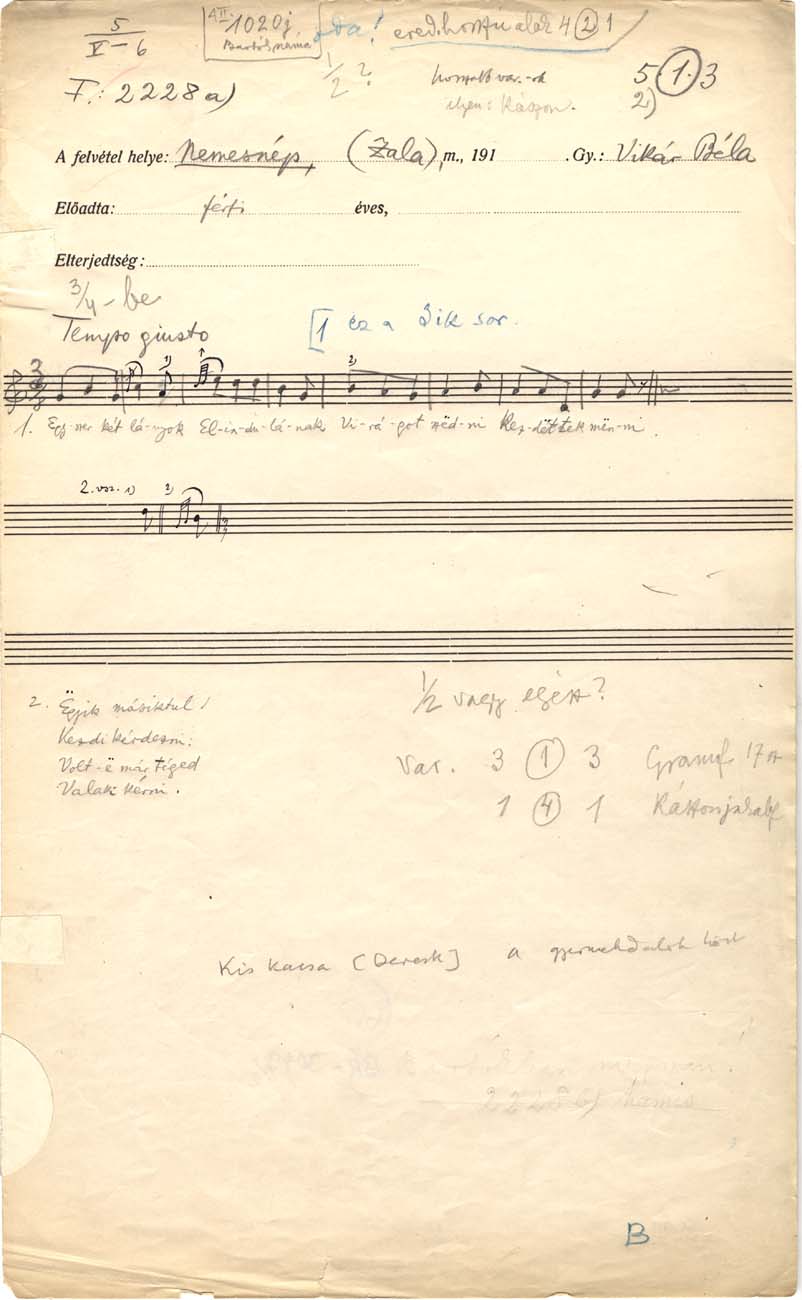 5
V-6
1020j
Bartók néma
Ida! ered. hosszú alak 4 2 1
1/2?
hosszabb var.-ok
ilyen: Kászon.
5 1. 3
2)
F.: 2228 a)
A felvétel helye: Nemesnép, (Zala), m., 191 .Gy.: Vikár Béla
Előadta: férfi éves,
Elterjedtség:
3/4-be
Tempo giusto
[1 ez a 3ik sor.
1) 2)
1. Egy-szer két lá-nyok El-in-du-lá-nak Vi-rá-got szëd-ni Kez-dëttek mën-ni
2. vsz. 1) 2)
2. Ëgyik másiktul
Kezdi kérdezni:
Volt-ë már téged
Valaki kérni.
1/2 vagy egész?
Var. 3 1 3 Gramf. 17
1 4 1
Kis kacsa [Deresk] a gyermekdalok közt
B